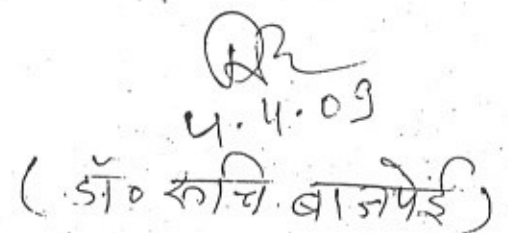 4.4.09
(डॉ० रूचि बाजपेई)